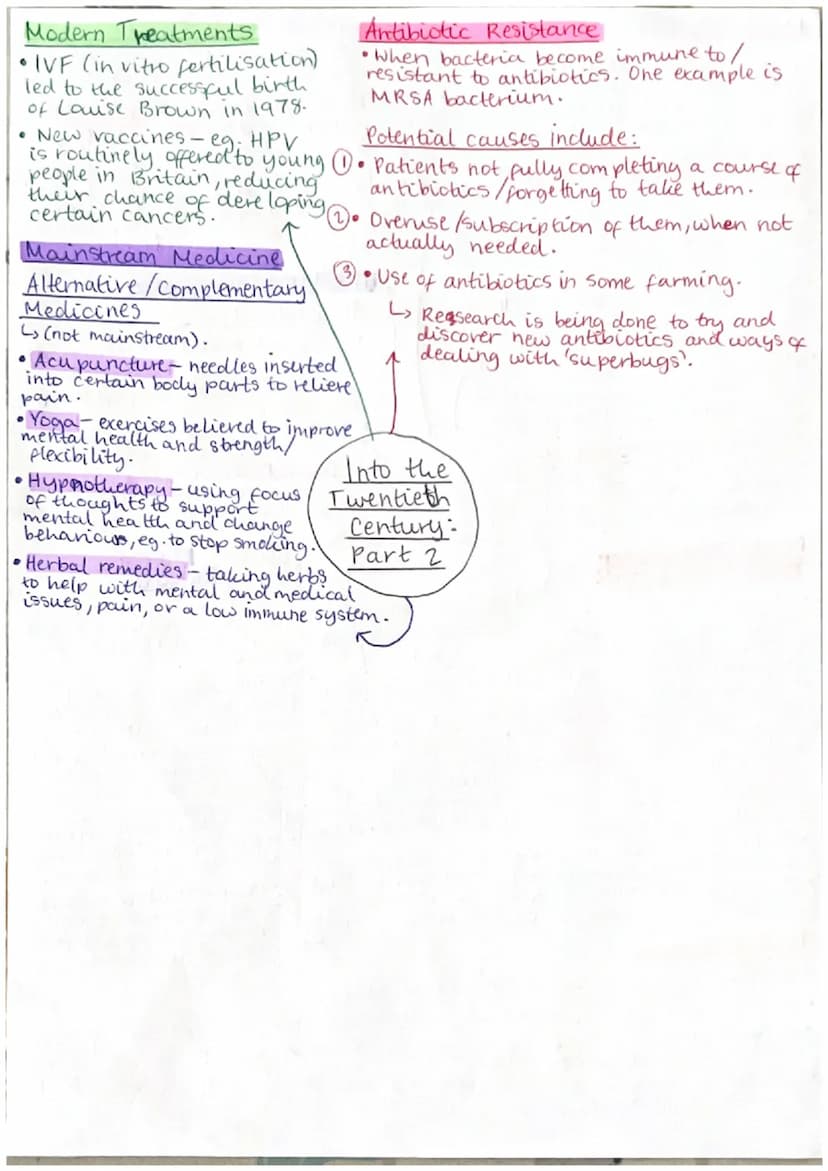 Modern Treatments
• IVF (in vitro fertilisation)
led to the successful birth
of Louise Brown in 1978.
• New vaccines – eg. HPV
is routinely offered to young
people in Britain, reducing
their chance of developing
certain cancers.
Mainstream Medicine
Alternative / Complementary
Medicines
↳ (not mainstream).
• Acupuncture – needles inserted
into certain body parts to relieve
pain.
• Yoga – exercises believed to improve
mental health and strength/
flexibility.
• Hypnotherapy – using focus
of thoughts to support
mental health and change
behaviours, eg. to stop smoking.
• Herbal remedies – taking herbs
to help with mental and medical
issues, pain, or a low immune system.
Antibiotic Resistance
• When bacteria become immune to /
resistant to antibiotics. One example is
MRSA bacterium.
Potential causes include:
① • Patients not fully completing a course of
antibiotics / forgetting to take them.
② • Overuse / subscription of them, when not
actually needed.
③ • Use of antibiotics in some farming.
↳ Research is being done to try and
discover new antibiotics and ways of
dealing with 'superbugs'.
Into the
Twentieth
Century:
Part 2